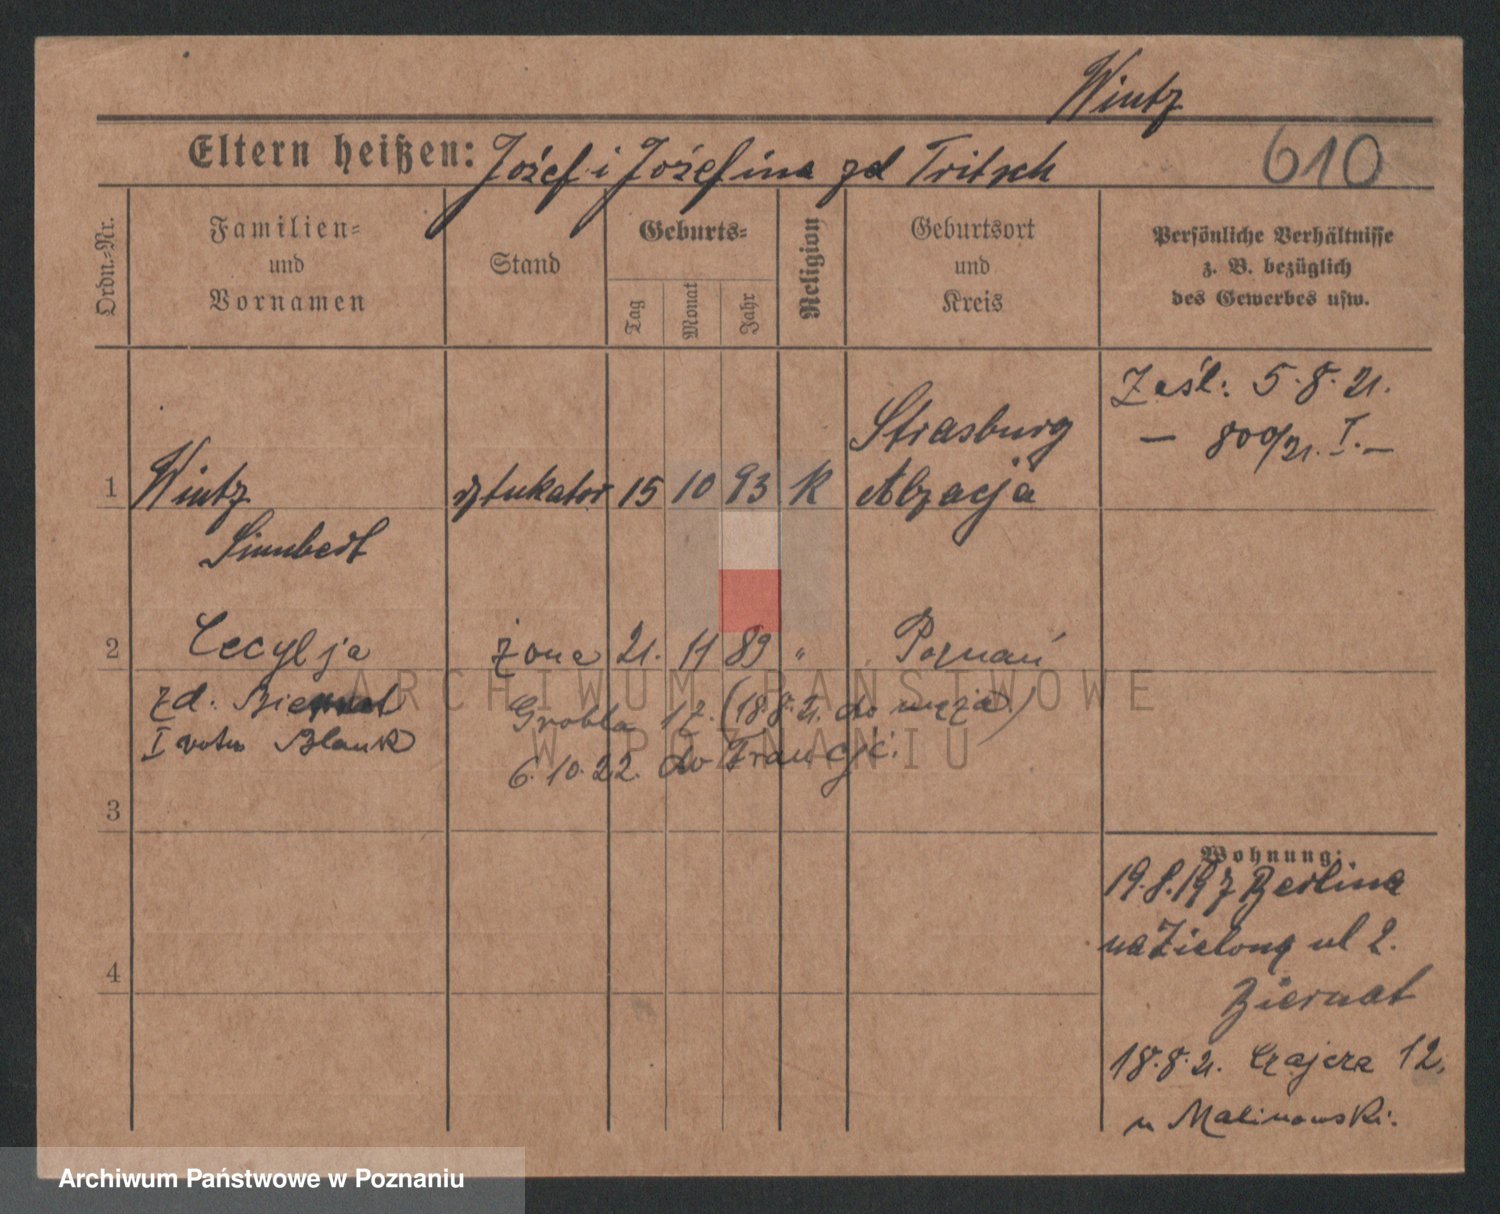 Wintz
610
Eltern heißen: Jozef i Jozefina zd Tritsch
Ordn.-Nr.
Familien=
und
Vornamen
Stand
Geburts=
Tag
Monat
Jahr
Religion
Geburtsort
und
Kreis
Persönliche Verhältnisse
z. B. bezüglich
des Gewerbes usw.
Zaśl: 5.8.21.
— 800/21. I. —
1 Wintz sztukator 15 10 93 K Strasburg
Alzacja
Simbert
2 Cecylja żona 21. 11 89 " Poznań
zd. Biernat
I voto Blank
Grobla 17. (18.8.21. do męża)
6.10.22. do Francji.
3
4
Wohnung:
19.8.19 z Berlina
na Zieloną ul 2.
Biernat
18.8.21. Czajcza 12.
u Malinowski.
ARCHIWUM PAŃSTWOWE
W POZNANIU
Archiwum Państwowe w Poznaniu